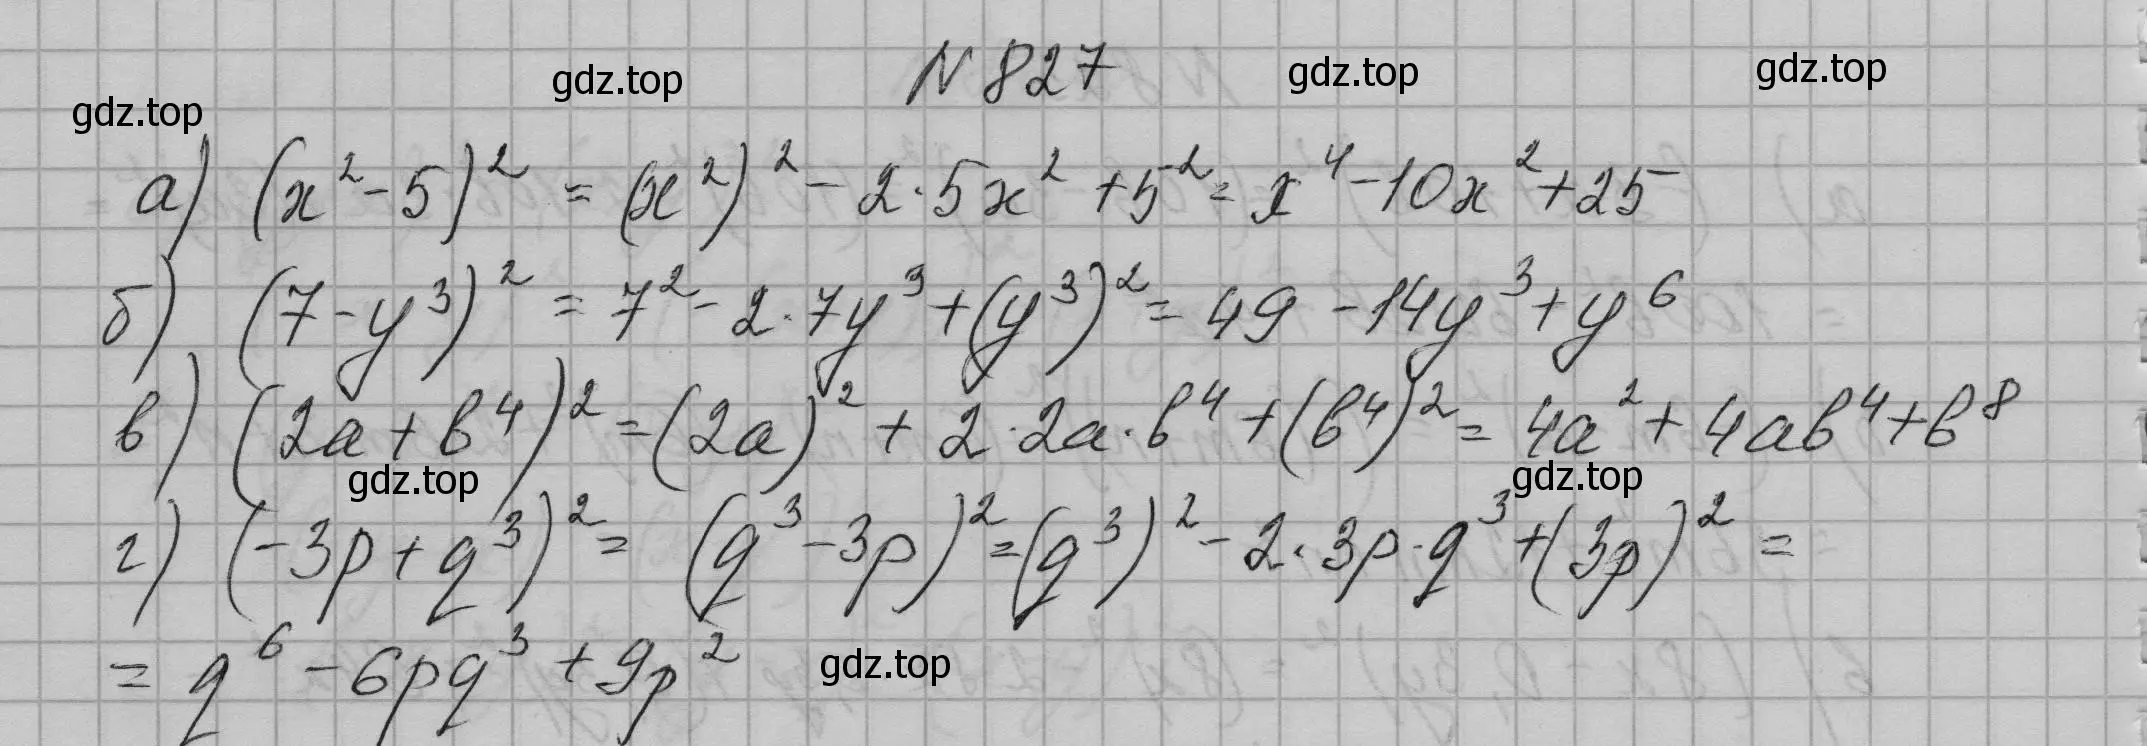 N 827
gdz.top gdz.top gdz.top gdz.top
а) (x² - 5)² = (x²)² - 2·5x² + 5² = x⁴ - 10x² + 25
б) (7 - y³)² = 7² - 2·7y³ + (y³)² = 49 - 14y³ + y⁶
в) (2a + b⁴)² = (2a)² + 2·2a·b⁴ + (b⁴)² = 4a² + 4ab⁴ + b⁸
gdz.top gdz.top
г) (-3p + q³)² = (q³ - 3p)² = (q³)² - 2·3p·q³ + (3p)² =
= q⁶ - 6pq³ + 9p²
gdz.top